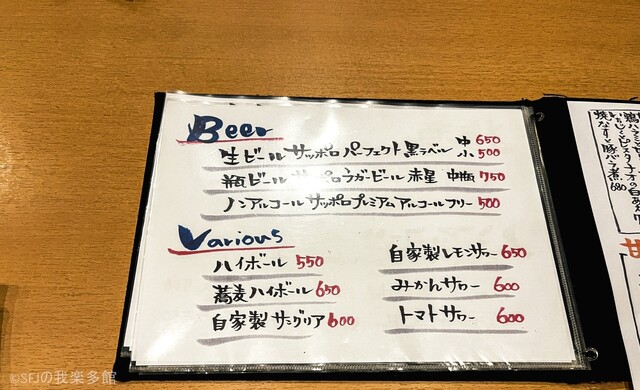 Beer
生ビール サッポロ パーフェクト黒ラベル 中 650
小 500
瓶ビール サッポロラガービール 赤星 中瓶 750
ノンアルコール サッポロプレミアム アルコールフリー 500
Various
ハイボール 550
蕎麦ハイボール 650
自家製 サングリア 600
自家製レモンサワー 650
みかんサワー 600
トマトサワー 600
焼なすと豚バラ煮 680
©SFJの我楽多館